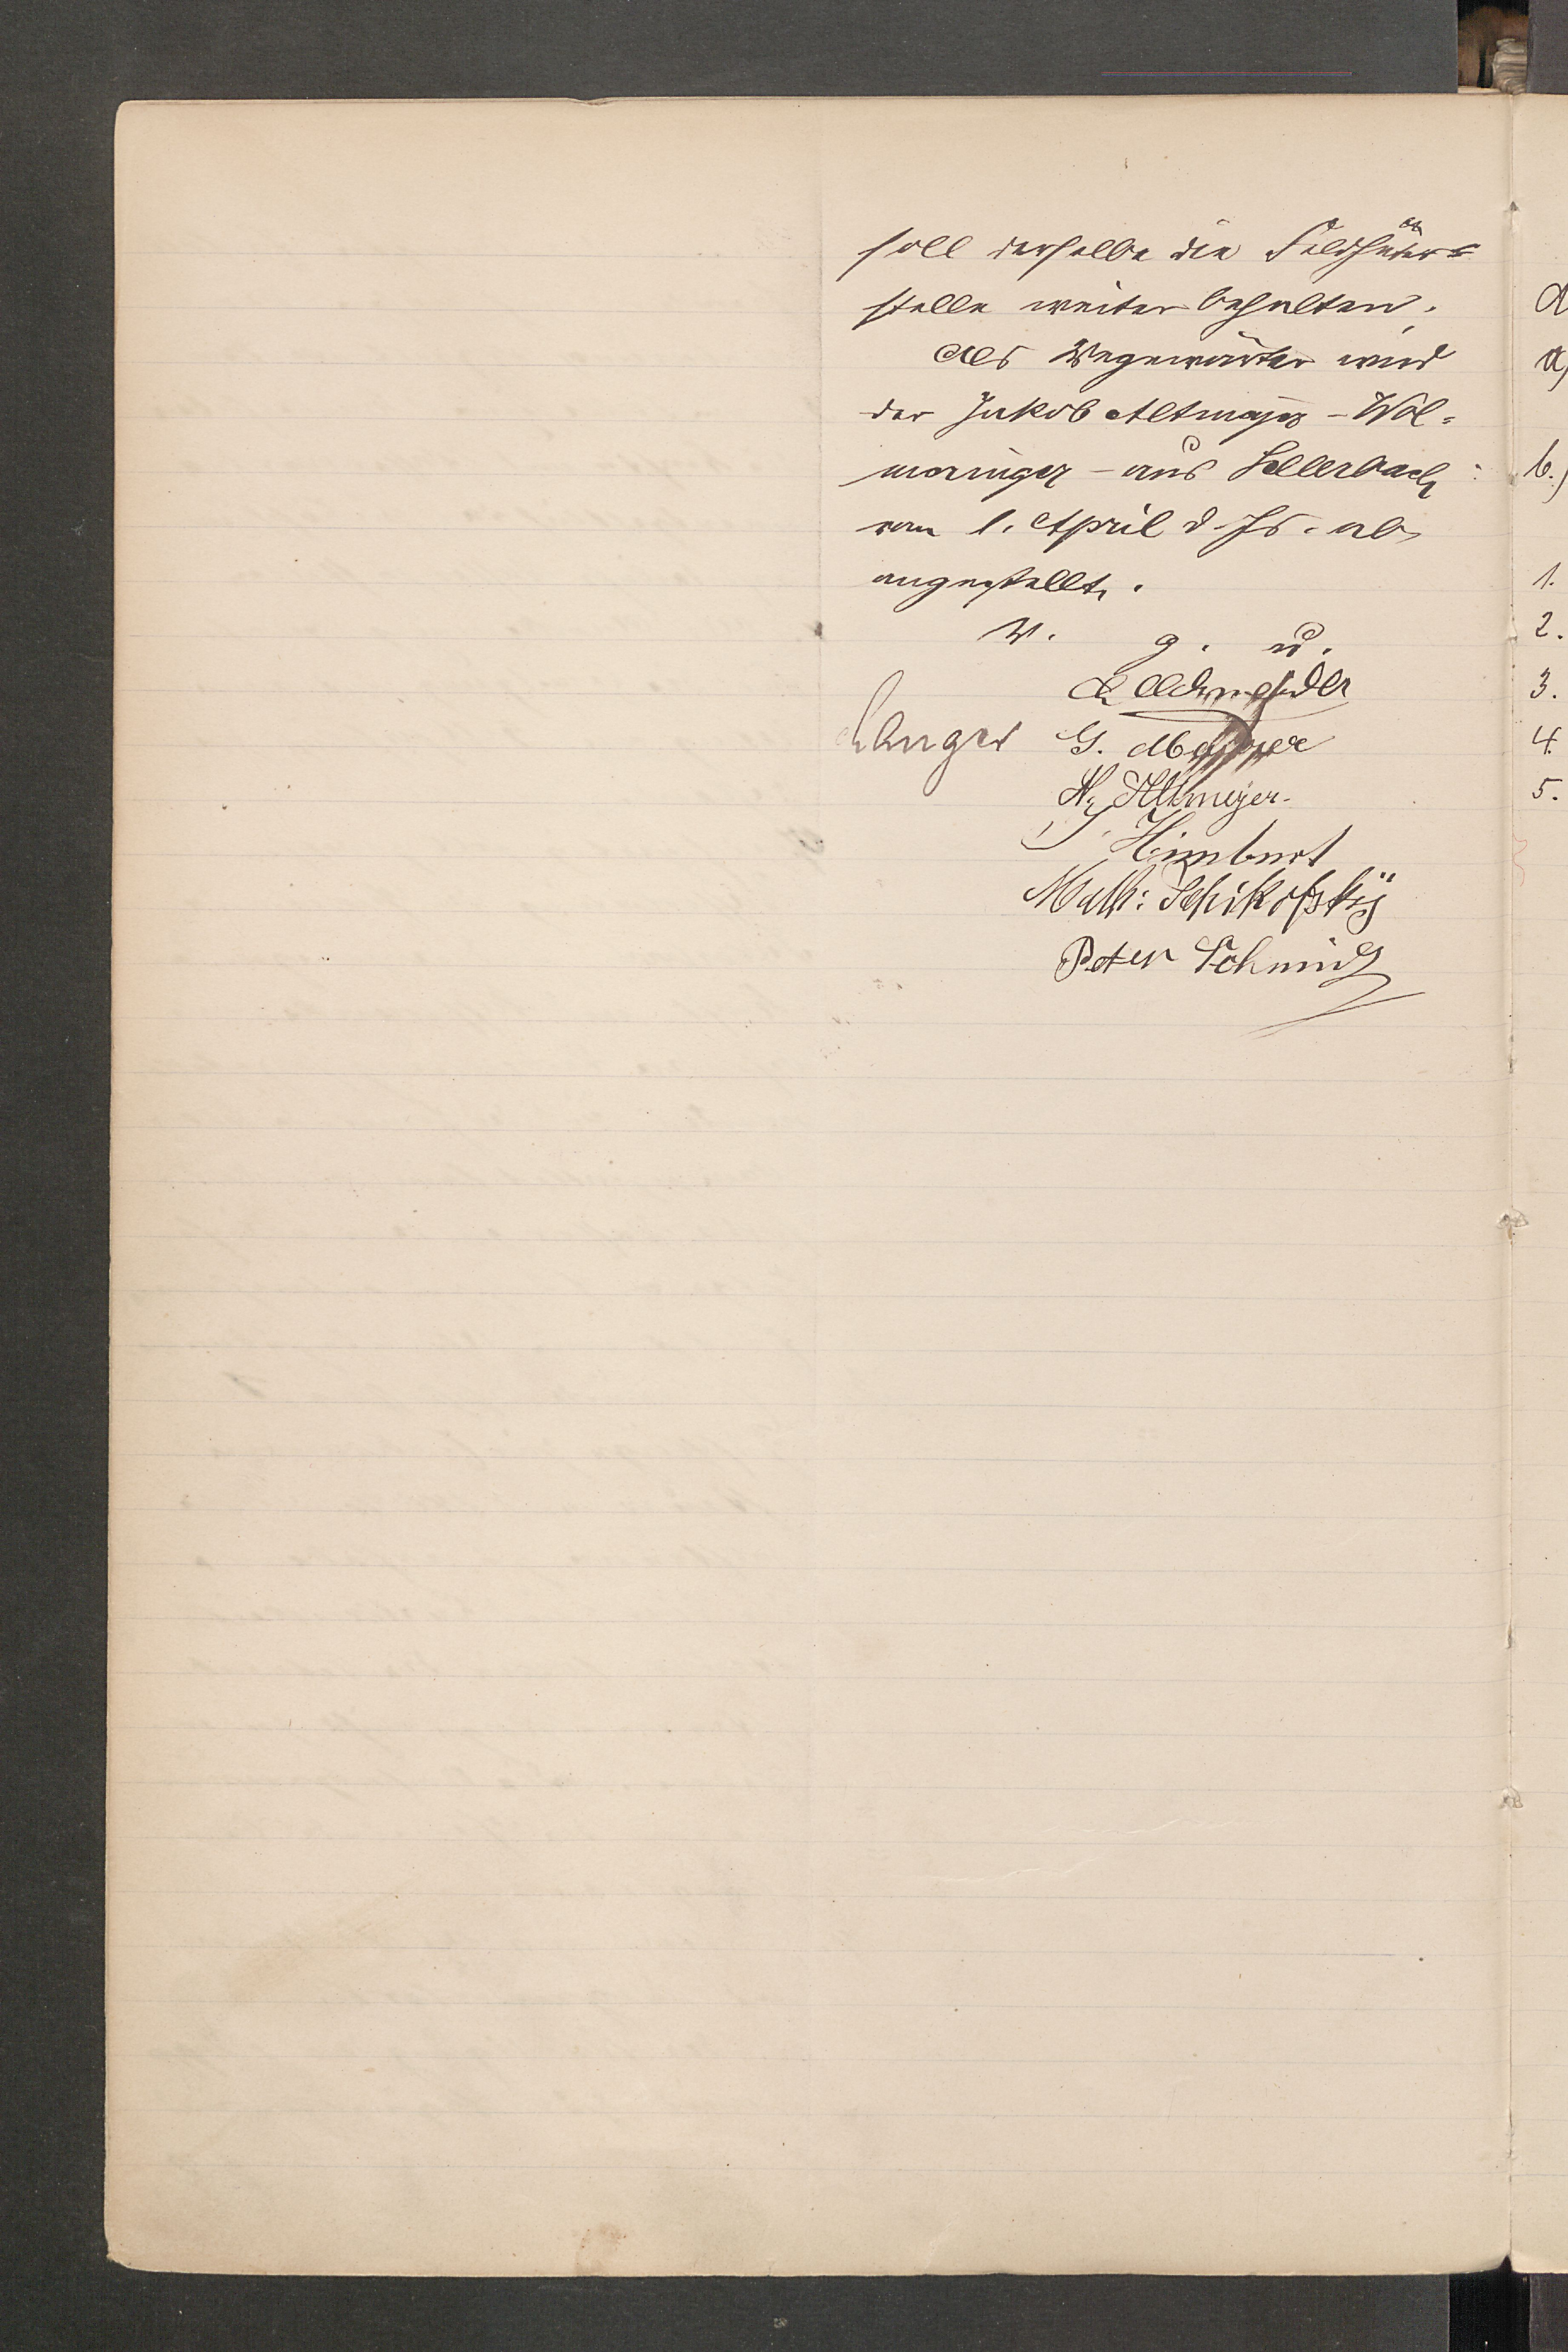 soll derselbe die Feldhüter=
stelle weiter behalten.
Als Wegewärter wird
der Jakob Altmayer - Wol=
meringer - aus Sellerbach
vom 1. April d. Js. ab
angestellt.
W. g. u.
Schneider
Langer G. Mayer
N. Altmeyer.
J. Himbert
Math: Schikofsky
Peter Schmidt
a)
b.)
1.
2.
3.
4.
5.